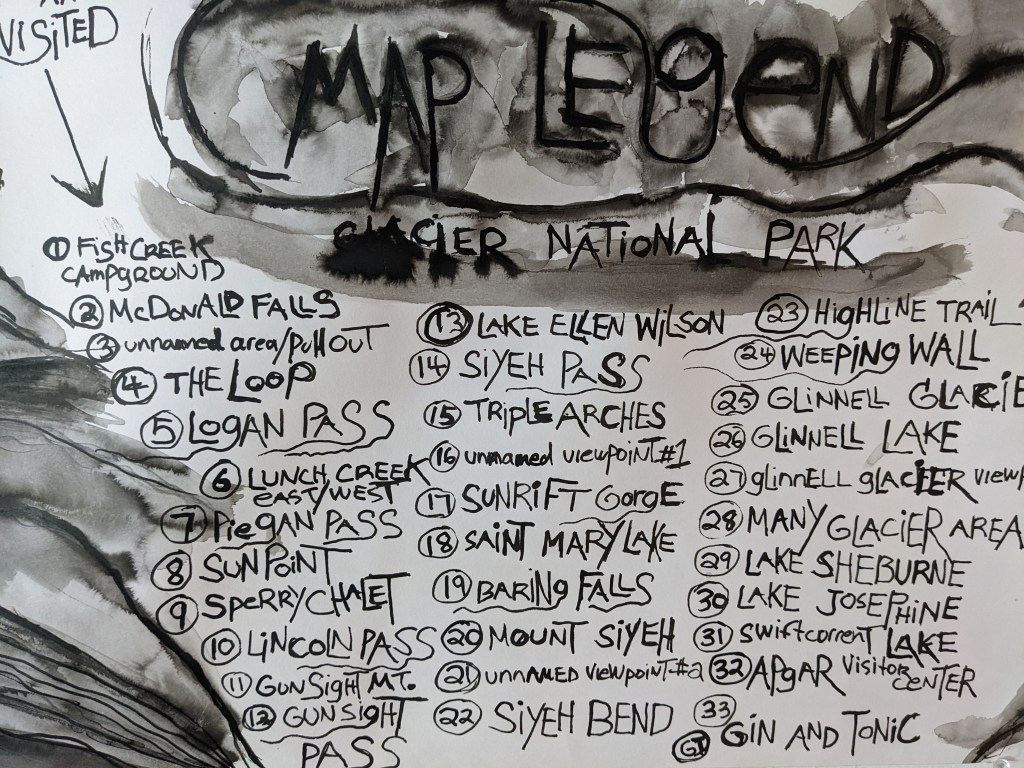 VISITED
MAP LEGEND
GLACIER NATIONAL PARK
1 FISH CREEK
CAMPGROUND
2 McDONALD FALLS
3 unnamed area/pull OUT
4 THE LOOP
5 LOGAN PASS
6 LUNCH CREEK
EAST/WEST
7 PiEGAN PASS
8 SUN POINT
9 SPERRY CHALET
10 LiNCOLN PASS
11 GUNSIGHT MT.
12 GUNSIGHT
PASS
13 LAKE ELLEN WILSON
14 SiYEH PASS
15 TRIPLE ARCHES
16 unnamed viewpoint #1
17 SUNRiFT GorgE
18 SAINT MARY LAKE
19 BARING FALLS
20 MOUNT SIYEH
21 UNNAMED VIEWPOINT #2
22 SIYEH BEND
23 HIGHLINE TRAIL
24 WEEPING WALL
25 GLINNELL GLACIE
26 GLINNELL LAKE
27 glinnELL gLACIER view
28 MANY GLACIER AREA
29 LAKE SHEBURNE
30 LAKE JOSEPHINE
31 Swiftcorrent LAKE
32 APGAR VISITOR
CENTER
33
GT GIN AND TONIC